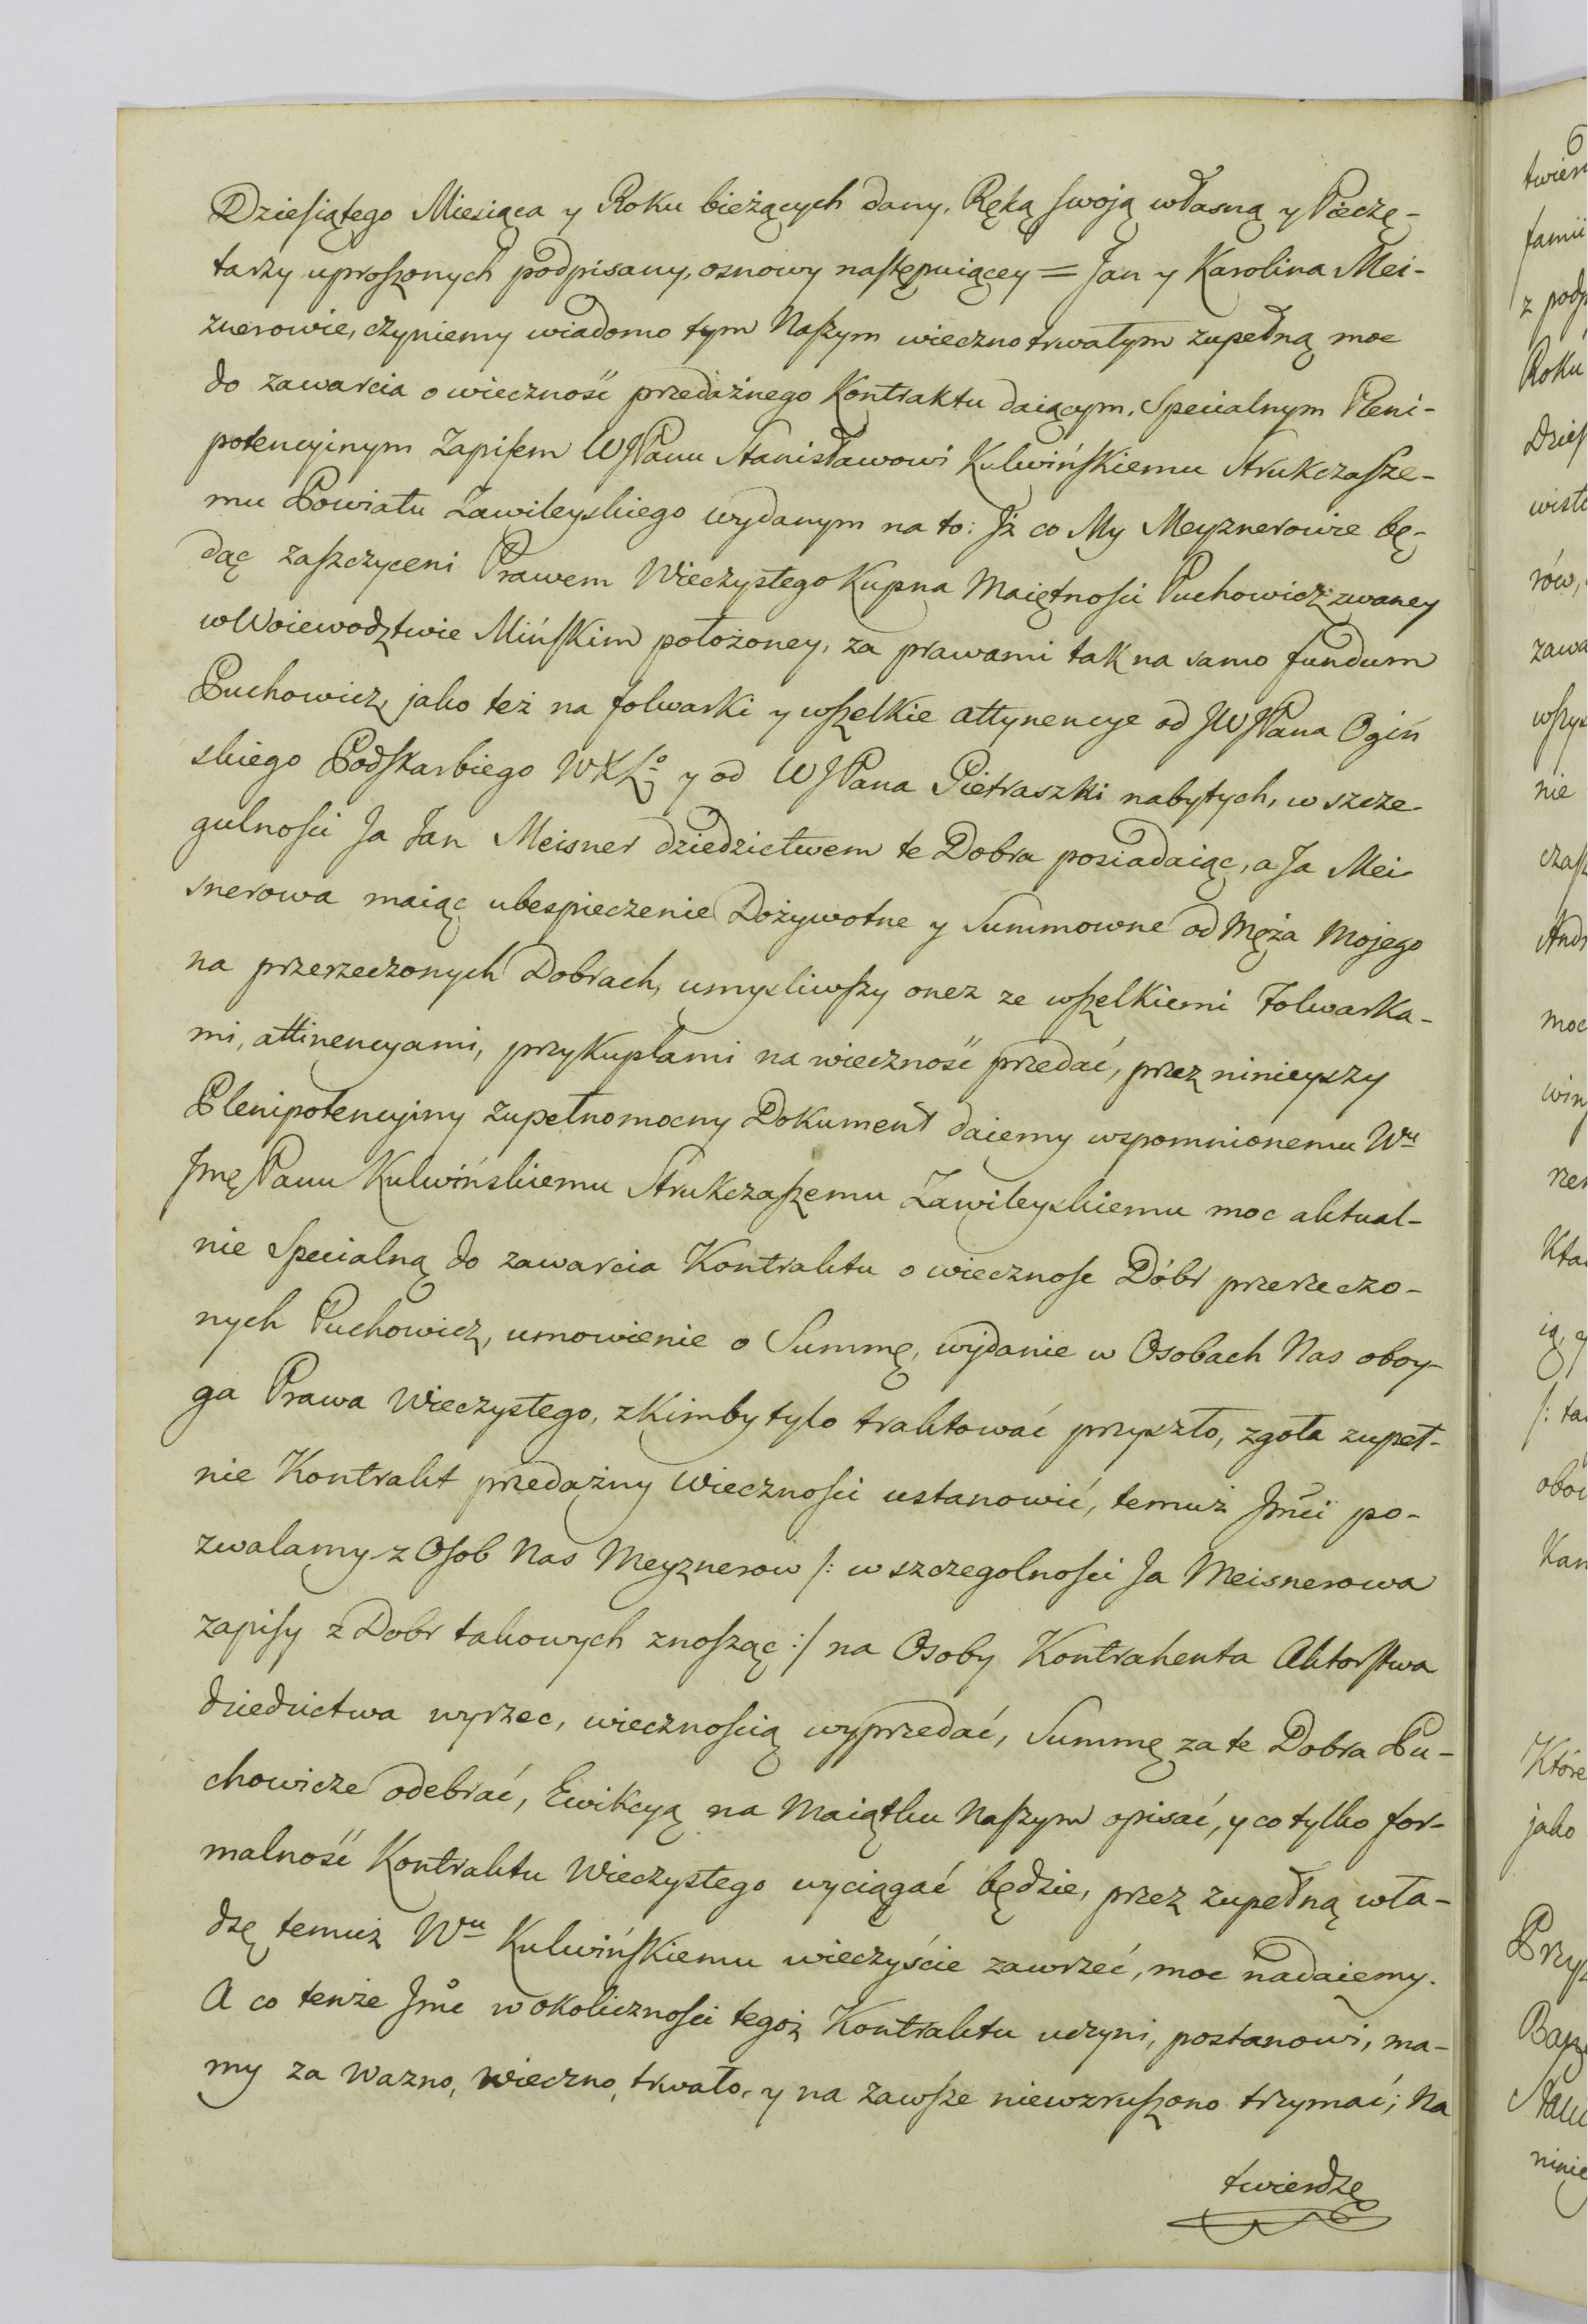 Dziesiątego Miesiąca y Roku bieżących dany, Ręką swoją własną y Pieczę-
tarzy uproszonych podpisany, osnowy następuiącey = Jan y Karolina Mei-
znerowie, czyniemy wiadomo tym Naszym wieczno trwałym zupełną moc
do zawarcia o wieczność przedażnego Kontraktu daiącym, Specialnym Pleni-
potencyinym Zapisem WJPanu Stanisławowi Kulwińskiemu Strukczasze-
mu Powiatu Zawileyskiego wydanym na to: Iż co My Meyznerowie bę-
dąc zaszczyceni Prawem Wieczystego Kupna Maiętności Puchowicz zwaney
w Woiewodztwie Mińskim położoney, za prawami tak na samo fundum
Puchowicz, jako też na folwarki y wszelkie attynencye od JWJPana Ogiń
skiego Podskarbiego WXLo y od WJPana Pietraszki nabytych, w szcze-
gulności Ja Jan Meisner dziedzictwem te Dobra posiadaiąc, a Ja Mei-
snerowa maiąc ubespieczenie Dożywotne y Summowne od Męża Mojego
na przerzeczonych Dobrach, umysliwszy onez ze wszelkiemi Folwarka-
mi, attinencyami, przykuplami na wieczność przedać, przez ninieyszy
Plenipotencyiny zupełnomocny Dokument daiemy wspomnionemu Wu
Jmę Panu Kulwińskiemu Strukczaszemu Zawileyskiemu moc aktual-
nie Specialną do zawarcia Kontraktu o wiecznosc Dóbr przerzeczo-
nych Puchowicz, umowienie o Summę, wydanie w Osobach Nas oboy-
ga Prawa Wieczystego, z Kimby tylo traktować przyszło, zgoła zupeł-
nie Kontrakt przedażny Wieczności ustanowić, temuż Jmci po-
zwalamy z Osob Nas Meyznerow /: w szczegolności Ja Meisnerowa
zapisy z Dobr takowych znosząc :/ na Osoby Kontrahenta Aktorstwa
dziedzictwa wyrzec, wiecznością wyprzedać, Summę za te Dobra Pu-
chowicze odebrać, Ewikcyą na Maiątku Naszym opisać, y co tylko for-
malność Kontraktu Wieczystego wyciągać będzie, przez zupełną wła-
dzę temuż Wu Kulwińskiemu wieczyście zawrzeć, moc nadaiemy.
A co tenże Jmc w okoliczności tegoż Kontraktu uczyni, postanowi, ma-
my za Wazno, wieczno, trwało, y na zawsze niewzruszono trzymać; Na
twierdzę